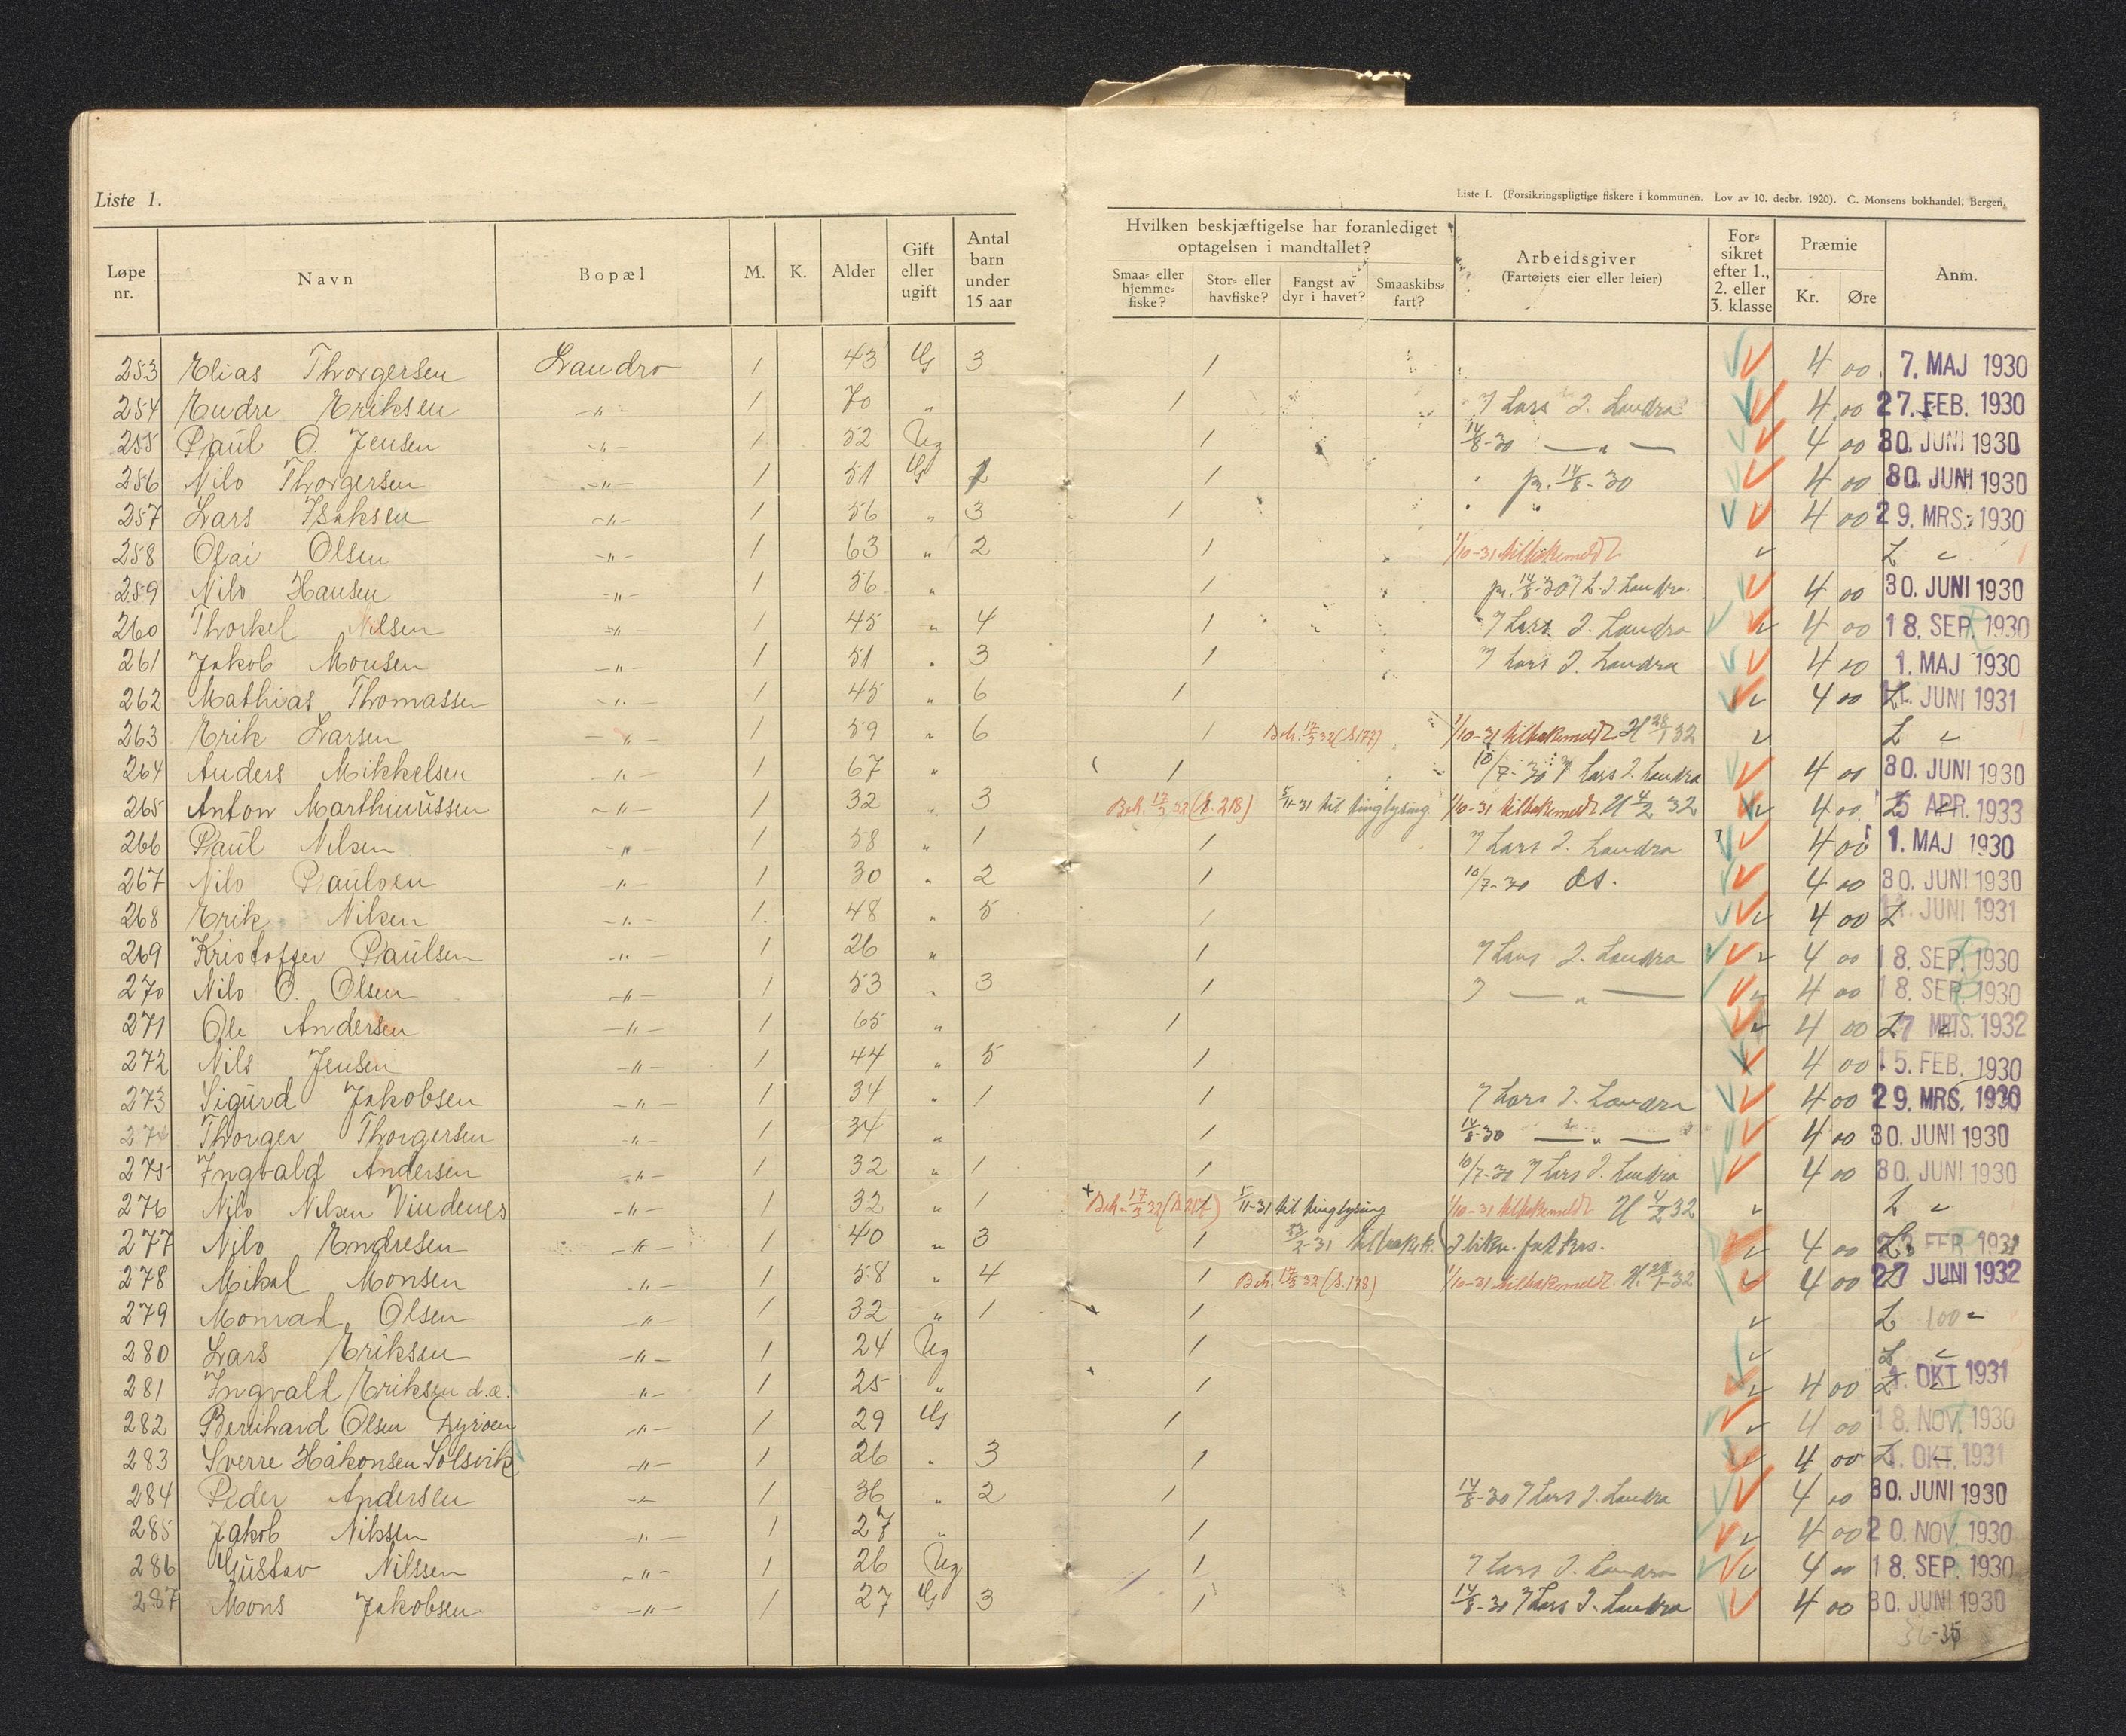 Liste 1.
Liste I. (Forsikringspligtige fiskere i kommunen. Lov av 10. decbr. 1920). C. Monsens bokhandel, Bergen.
Løpe nr. Navn Bopæl M. K. Alder Gift eller ugift Antal barn under 15 aar Hvilken beskjæftigelse har foranlediget optagelsen i mandtallet? Smaa- eller hjemme-fiske? Stor- eller havfiske? Fangst av dyr i havet? Smaaskibs-fart? Arbeidsgiver (Fartøiets eier eller leier) For-sikret efter 1., 2. eller 3. klasse Præmie Kr. Øre Anm.
253 Elias Thorgersen Landro 1 43 G 3 1 4 00 7. MAJ 1930
254 Endre Eriksen -"- 1 70 " 1 Lars J. Landro 4 00 27. FEB. 1930
255 Paul O. Jensen -"- 1 52 Ug 1 14/8-30 — " — 4 00 30. JUNI 1930
256 Nils Thorgersen -"- 1 51 G 1 pr. 14/8-30 4 00 30. JUNI 1930
257 Lars Isaksen -"- 1 56 " 3 1 4 00 29. MRS. 1930
258 Olai Olsen -"- 1 63 " 2 1 1/10-31 tilbakemeldt L
259 Nils Hansen -"- 1 56 " 1 pr. 14/8-30 L. J. Landro. 4 00 30. JUNI 1930
260 Thorkel Nilsen -"- 1 45 " 4 1 Lars J. Landro 4 00 18. SEP. 1930
261 Jakob Monsen -"- 1 51 " 3 1 Lars J. Landro 4 00 1. MAJ 1930
262 Mathias Thomassen -"- 1 45 " 6 1 4 00 L JUNI 1931
263 Erik Larsen -"- 1 59 " 6 1 Beh. 17/3 32 (S.177) 1/10-31 tilbakemeldt U 28/1 32 L
264 Anders Mikkelsen -"- 1 67 " 1 10/7-30 Lars J. Landro 4 00 30. JUNI 1930
265 Anton Marthinussen -"- 1 32 " 3 Beh. 17/3 32 (S. 218) 5/11-31 til tinglysing 1/10-31 tilbakemeldt U 4/2 32 4 00 L 5 APR. 1933
266 Paul Nilsen -"- 1 58 " 1 1 Lars J. Landro 4 00 1. MAJ 1930
267 Nils Paulsen -"- 1 30 " 2 1 10/7-30 ds. 4 00 30. JUNI 1930
268 Erik Nilsen -"- 1 48 " 5 1 4 00 L JUNI 1931
269 Kristoffer Paulsen -"- 1 26 " 1 Lars J. Landro 4 00 18. SEP. 1930
270 Nils O. Olsen -"- 1 53 " 3 1 — " — 4 00 18. SEP. 1930
271 Ole Andersen -"- 1 65 " 1 4 00 L 7 MRTS. 1932
272 Nils Jensen -"- 1 44 " 5 1 4 00 15. FEB. 1930
273 Sigurd Jakobsen -"- 1 34 " 1 1 Lars J. Landro 4 00 29. MRS. 1930
274 Thorger Thorgersen -"- 1 34 " 1 14/8-30 — " — 4 00 30. JUNI 1930
275 Ingvald Andersen -"- 1 32 " 1 1 10/7-30 Lars J. Landro 4 00 30. JUNI 1930
276 Nils Nilsen Vindenes -"- 1 32 " 1 Beh. 17/3 32 5/11-31 til tinglysing 1/10-31 tilbakemeldt U 4/2 32 L
277 Nils Endresen -"- 1 40 " 3 1 23/2-31 tilbakek. 4 00 L FEB 1931
278 Mikal Monsen -"- 1 58 " 4 1 Beh. 17/3 32 (S.178) 1/10-31 tilbakemeldt. U. 28/1-32 4 00 27 JUNI 1932
279 Monrad Olsen -"- 1 32 " 1 1 L 100
280 Lars Eriksen -"- 1 24 Ug 1 L
281 Ingvald Eriksen d.æ. -"- 1 25 " 1 4 00 L OKT 1931
282 Bernhard Olsen Lyröen -"- 1 29 G 1 4 00 18. NOV. 1930
283 Sverre Håkonsen Solsvik -"- 1 26 " 3 1 4 00 L OKT. 1931
284 Peder Andersen -"- 1 36 " 2 1 14/8-30 Lars J. Landro 4 00 30. JUNI 1930
285 Jakob Nilssen -"- 1 27 " 1 4 00 20. NOV. 1930
286 Gustav Nilssen -"- 1 26 Ug 1 Lars J. Landro 4 00 18. SEP. 1930
287 Mons Jakobsen -"- 1 27 G 3 1 14/8-30 Lars J. Landro 4 00 30. JUNI 1930
36-35